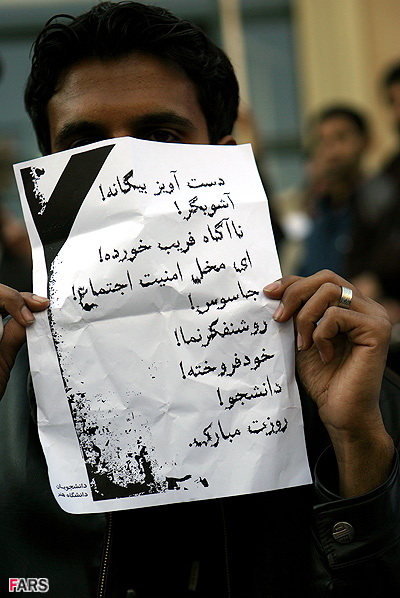 دست آویز بیگانه!
آشوبگر!
ناآگاه فریب خورده!
ای مخل امنیت اجتماع!
جاسوس!
روشنفکرنما!
خودفروخته!
دانشجو!
روزت مبارک.
دانشجویان
دانشگاه هنر
FARS